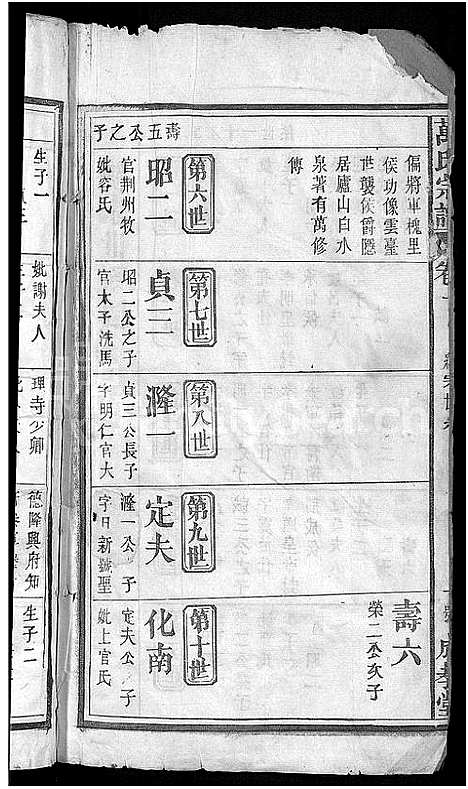 萬氏宗譜
卷一
偏將軍槐里
侯功像雲臺
世襲侯爵隱
居廬山白水
泉著有萬修
傳
壽六
榮二公次子
第六世
第七世
第八世
第九世
第十世
壽五公之子
昭二
官荆州牧
妣容氏
貞三
昭二公之子
官太子洗馬
漋一
貞三公長子
字明仁官大
定夫
漋一公子
字日新號聖
化南
定夫公子
妣上官氏
生子一
妣謝夫人
理寺少卿
德隆興府知
生子二